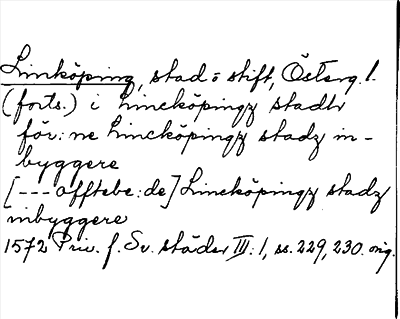 Linköping, stad o stift, Österg. l.
(forts.) i Lincköpingz stadh
för: ne Lincköpingz stadz in-
byggere
[--- offtebe: de] Lincköpingz stadz
inbyggere
1572 Priv. f. Sv. städer III: 1, ss. 229, 230. orig.